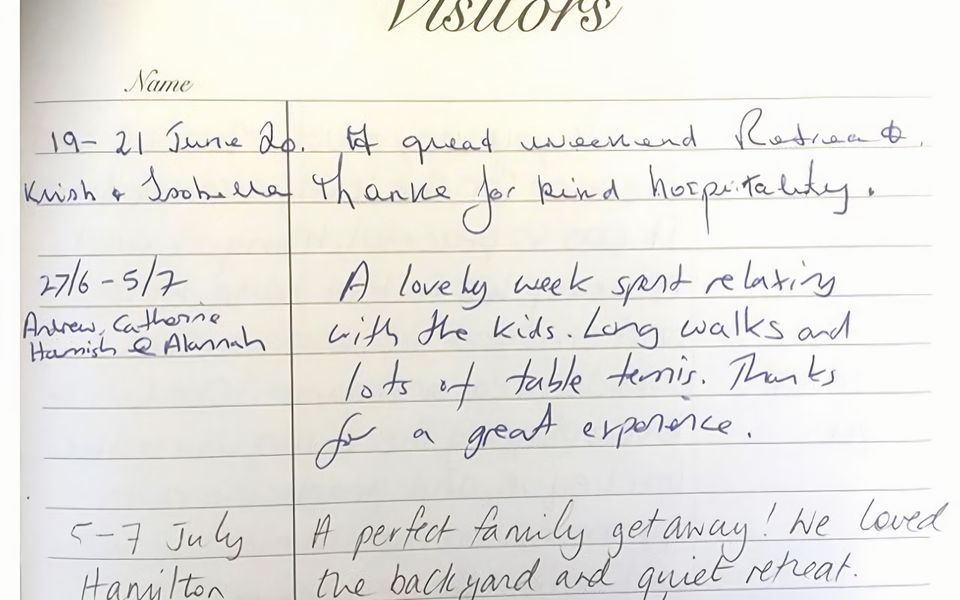 Visitors
Name
19-21 June 20. A great weekend Retreat.
Krish & Isobella Thanks for kind hospitality.
27/6 - 5/7 A lovely week spent relaxing
Andrew, Catherine with the kids. Long walks and
Hamish & Alannah
lots of table tennis. Thanks
for a great experience.
5-7 July A perfect family getaway! We loved
Hamilton the backyard and quiet retreat.